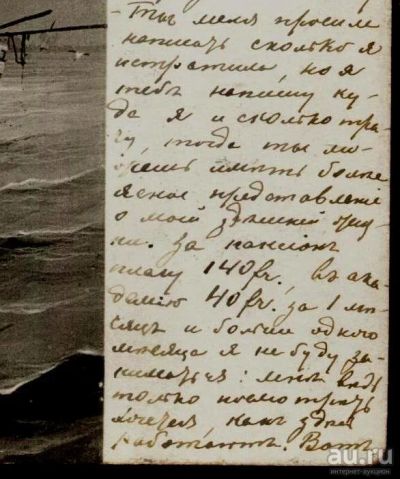 Ты меня просил
написать сколько я
истратила, но я
тебѣ напишу ку-
да я и сколько тра-
чу, тогда ты мо-
жешь имѣть болѣе
ясное представленіе
о моей здѣшней жиз-
ни. За пансіонъ
плачу 140 fr., въ ака-
демію 40 fr. за 1 мѣ-
сяцъ и болѣе одного
мѣсяца я не буду за-
ниматься: мнѣ вѣдь
только посмотрѣть
хочется, какъ здѣсь
работаютъ. Вотъ
au.ru
интернет-аукцион